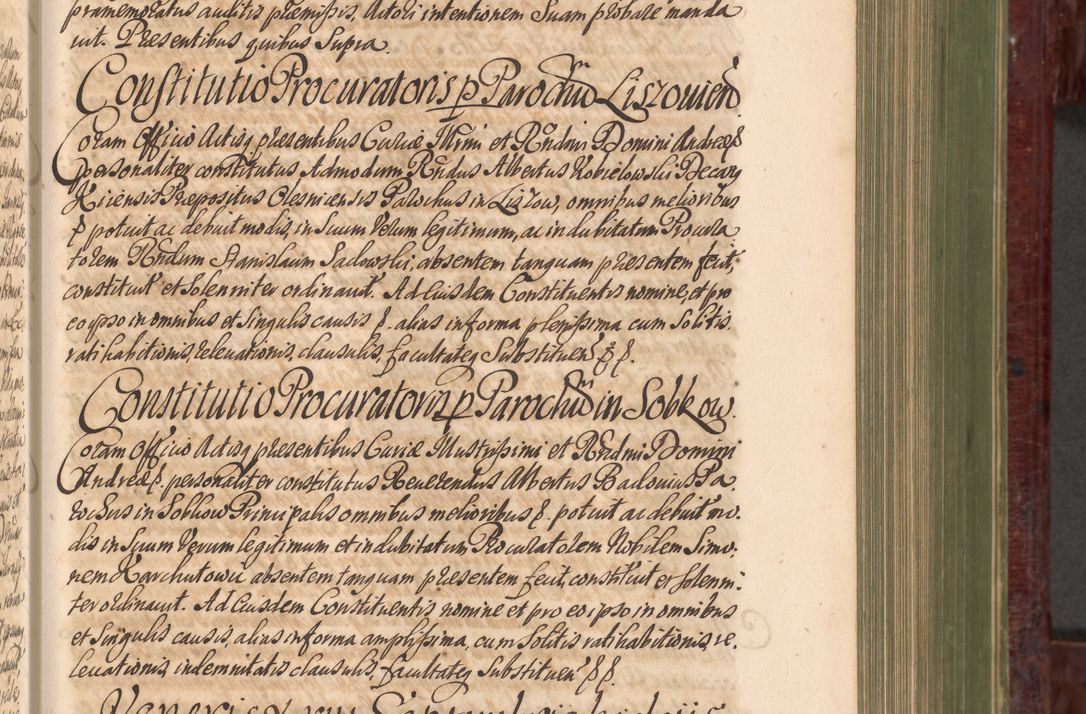 pramemoratus auditis præmissis, Actori intentionem Suam probare manda
uit. Præsentibus quibus Supra.
Constitutio Procuratoris p Parochū Liszouien̄
Coram Officio Actisq præsentibus Curiæ Illrmi et Rn̄dmi Domini Andreæ &
personaliter constitutus Admodum Rn̄dus Albertus Kobielowski Decanq
Præpositus Olesniensis Parochus in Liszow, omnibus melioribus
& potuit ac debuit modis, in Suum Verum legitimum, ac indubitatum Procura
torem Rn̄dum Stanislaum Sadowski, absentem tanquam præsentem fecit,
constituit et Solenniter ordinauit. Ad Eiusdem Constituentis nomine, et pro
eo ipso in omnibus et Singulis causis &. alias in forma plenissima cum Solitis
ratihabitionis, releuationis, clausulis, facultateq Substituen̄ & &.
Constitutio Procuratoris p Parochū in Sobkow.
Coram Officio Actisq præsentibus Curiæ Illustrissimi et Rn̄dmi Domini
Andreæ &. personaliter constitutus Reuerendus Albertus Pa
rochus in Sobkow Principalis omnibus melioribus &. potuit ac debuit mo.
dis in Suum Verum legitimum et indubitatum Procuratorem Nobilem Simo.
nem absentem tanquam præsentem fecit, constituit et Solenni.
ter ordinauit. Ad Eiusdem Constituentis nomine et pro eo ipso in omnibus
et Singulis causis, alias in forma amplissima, cum Solitis ratihabitionis, re
leuationis, indemnitatis clausulis, facultateq Substituen̄ & &.